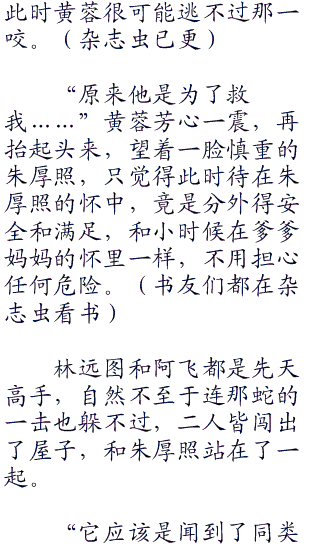 此时黄蓉很可能逃不过那一
咬。（杂志虫已更）
“原来他是为了救
我……”黄蓉芳心一震，再
抬起头来，望着一脸慎重的
朱厚照，只觉得此时待在朱
厚照的怀中，竟是分外得安
全和满足，和小时候在爹爹
妈妈的怀里一样，不用担心
任何危险。（书友们都在杂
志虫看书）
林远图和阿飞都是先天
高手，自然不至于连那蛇的
一击也躲不过，二人皆闯出
了屋子，和朱厚照站在了一
起。
“它应该是闻到了同类